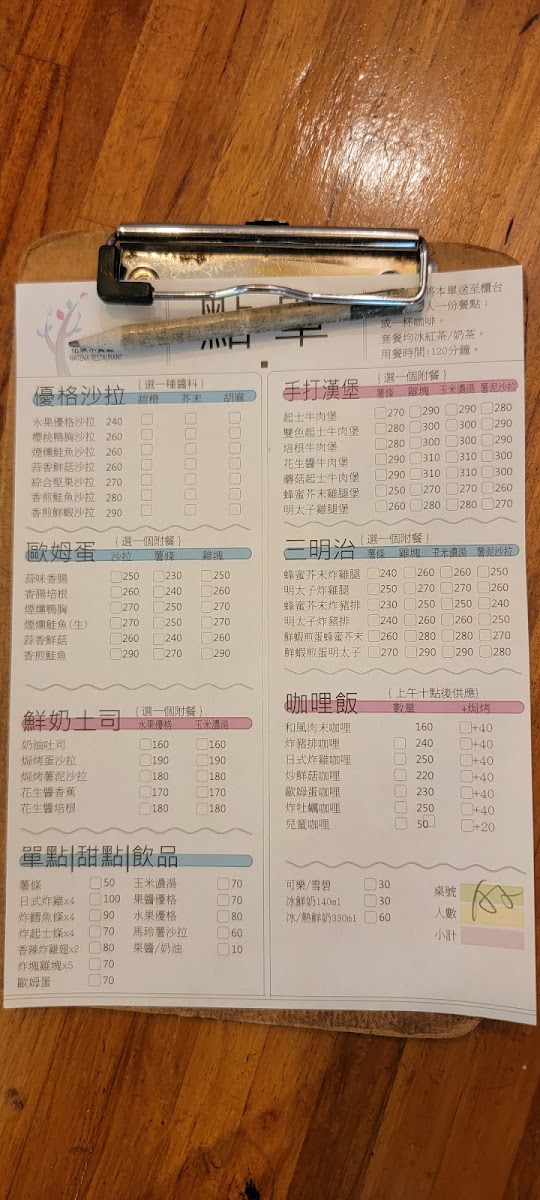 點單
HATENA RESTAURANT
將本單送至櫃台
人一份餐點:
或一杯咖啡。
套餐均冰紅茶/奶茶。
用餐時間:120分鐘。
優格沙拉 (選一種醬料)
甜橙 芥末 胡麻
水果優格沙拉 240
櫻桃鴨胸沙拉 260
煙燻鮭魚沙拉 260
蒜香鮮菇沙拉 260
綜合堅果沙拉 270
香煎鮭魚沙拉 280
香煎鮮蝦沙拉 290
歐姆蛋 (選一個附餐)
沙拉 薯條 雞塊
蒜味香腸 250 230 250
香腸培根 260 240 260
煙燻鴨胸 270 250 270
煙燻鮭魚(生) 270 250 270
蒜香鮮菇 260 240 260
香煎鮭魚 290 270 290
鮮奶土司 (選一個附餐)
水果優格 玉米濃湯
奶油吐司 160 160
焗烤蛋沙拉 190 190
焗烤薯泥沙拉 180 180
花生醬香蕉 170 170
花生醬培根 180 180
單點|甜點|飲品
薯條 50 玉米濃湯 70
日式炸雞x4 100 果醬優格 70
炸鱈魚條x4 90 水果優格 80
炸起士條x4 70 馬玲薯沙拉 60
香辣炸雞翅x2 80 果醬/奶油 10
炸塊雞塊x5 70
歐姆蛋 70
手打漢堡 (選一個附餐)
薯條 雞塊 玉米濃湯 薯泥沙拉
起士牛肉堡 270 290 290 280
雙色起士牛肉堡 280 300 300 290
培根牛肉堡 280 300 300 290
花生醬牛肉堡 290 310 310 300
蘑菇起士牛肉堡 290 310 310 300
蜂蜜芥末雞腿堡 250 270 270 260
明太子雞腿堡 260 280 280 270
三明治 (選一個附餐)
薯條 雞塊 玉米濃湯 薯泥沙拉
蜂蜜芥末炸雞腿 240 260 260 250
明太子炸雞腿 250 270 270 260
蜂蜜芥末炸豬排 230 250 250 240
明太子炸豬排 240 260 260 250
鮮蝦煎蛋蜂蜜芥末 260 280 280 270
鮮蝦煎蛋明太子 270 290 290 280
咖哩飯 (上午十點後供應)
數量 +焗烤
和風肉末咖哩 160 +40
炸豬排咖哩 240 +40
日式炸雞咖哩 250 +40
炒鮮菇咖哩 220 +40
歐姆蛋咖哩 230 +40
炸牡蠣咖哩 250 +40
兒童咖哩 50 +20
可樂/雪碧 30
冰鮮奶140ml 30
冰/熱鮮奶330ml 60
桌號
人數
小計